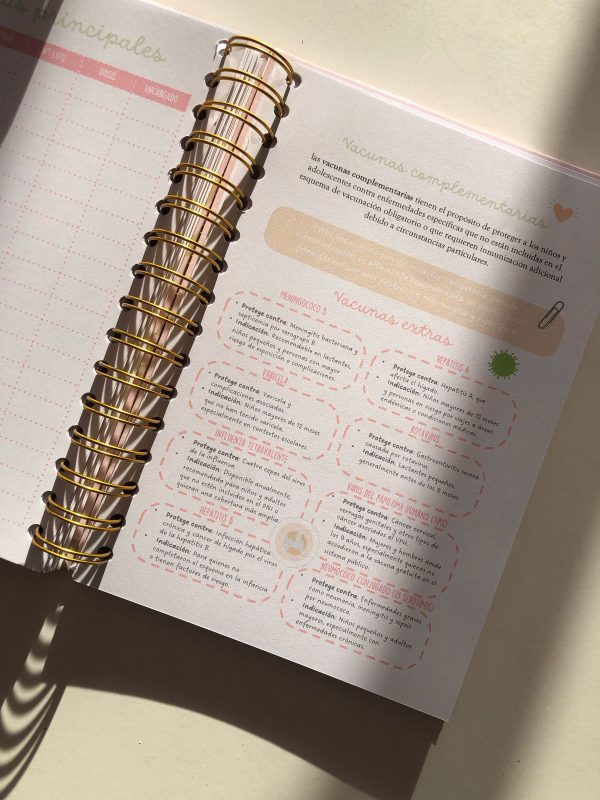 principales
Nº LOTE
DOSIS
ENCARGADO
Vacunas complementarias
las vacunas complementarias tienen el propósito de proteger a los niños y
adolescentes contra enfermedades específicas que no están incluidas en el
esquema de vacunación obligatorio o que requieren inmunización adicional
debido a circunstancias particulares.
Vacunas extras
MENINGOCOCO B
• Protege contra: Meningitis bacteriana y
septicemia por serogrupo B.
• Indicación: Recomendable en lactantes,
niños pequeños y personas con mayor
riesgo de exposición o complicaciones.
HEPATITIS A
• Protege contra: Hepatitis A, que
afecta el hígado.
• Indicación: Niños mayores de 12 meses
y personas en riesgo por viajes a áreas
endémicas o condiciones médicas.
VARICELA
• Protege contra: Varicela y
complicaciones asociadas.
• Indicación: Niños mayores de 12 meses
que no han tenido varicela,
especialmente en contextos escolares.
ROTAVIRUS
• Protege contra: Gastroenteritis severa
causada por rotavirus.
• Indicación: Lactantes pequeños,
generalmente antes de los 6 meses.
INFLUENZA TETRAVALENTE
• Protege contra: Cuatro cepas del virus
de la influenza.
• Indicación: Disponible anualmente,
recomendada para niños y adultos
que no estén incluidos en el PNI o
quieran una cobertura más amplia.
VIRUS DEL PAPILOMA HUMANO (VPH)
• Protege contra: Cáncer cervical,
verrugas genitales y otros tipos de
cáncer asociados al VPH.
• Indicación: Mujeres y hombres desde
los 9 años, especialmente quienes no
accedieron a la vacuna gratuita en el
sistema público.
HEPATITIS B
• Protege contra: Infección hepática
crónica y cáncer de hígado por el virus
de la hepatitis B.
• Indicación: Para quienes no
completaron el esquema en la infancia
o tienen factores de riesgo.
NEUMOCOCO CONJUGADO (13 SEROTIPOS)
• Protege contra: Enfermedades graves
como neumonía, meningitis y sepsis
por neumococo.
• Indicación: Niños pequeños y adultos
mayores, especialmente con
enfermedades crónicas.